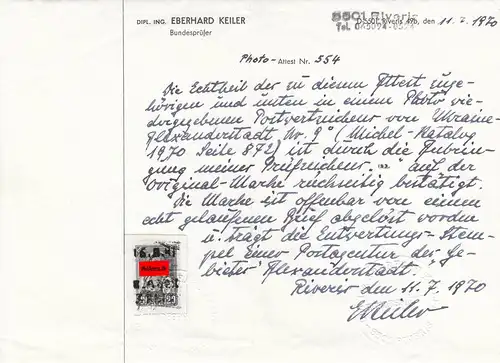 DIPL. ING. EBERHARD KEILER
Bundesprüfer
5501 Riveris
Tel. 065004-8524
den 11.7.1970
Photo-Attest Nr. 554
Die Echtheit der zu diesem Attest zuge-
hörigen und unten in einem Photo wie-
dergegebenen Postwertzeichens von Ukraine-
Alexanderstadt Nr. 9 (Michel-Katalog
1970 Seite 872) ist durch die Anbrin-
gung meines Prüfzeichens auf der
Original-Marke rückseitig bestätigt.
Die Marke ist offenbar von einem
echt gelaufenen Brief abgelöst worden
u. trägt die Entwertungs-Stem-
pel einer Postagentur des Ge-
bietes Alexanderstadt.
Riveris den 11.7.1970
EKeiler